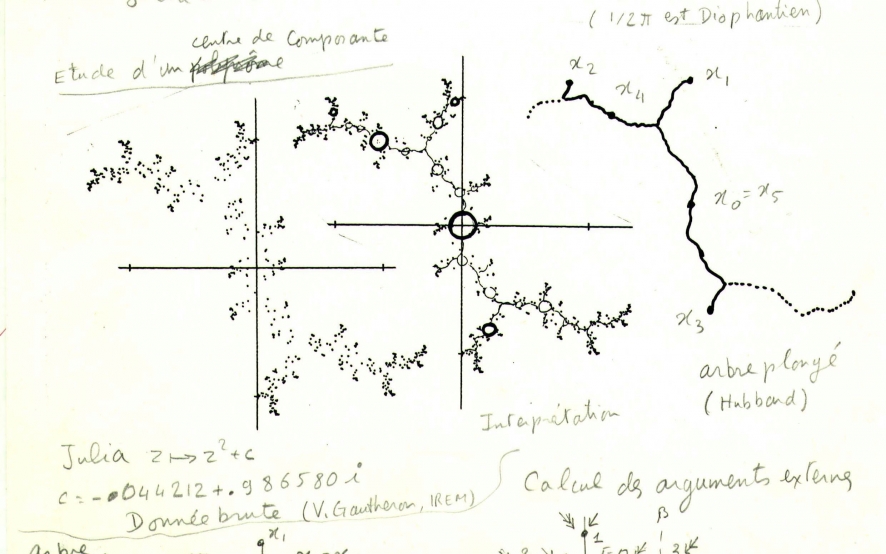 (1/2π est Diophantien)
centre de Composante
Etude d'un
x₂
x₄
x₁
x₀=x₅
x₃
arbre plongé
(Hubbard)
Interprétation
Julia z↦z²+c
c=-.044212+.986580i
Donnée brute (V. Gautheron, IREM)
Calcul des arguments externes
arbre
x₁
β
1